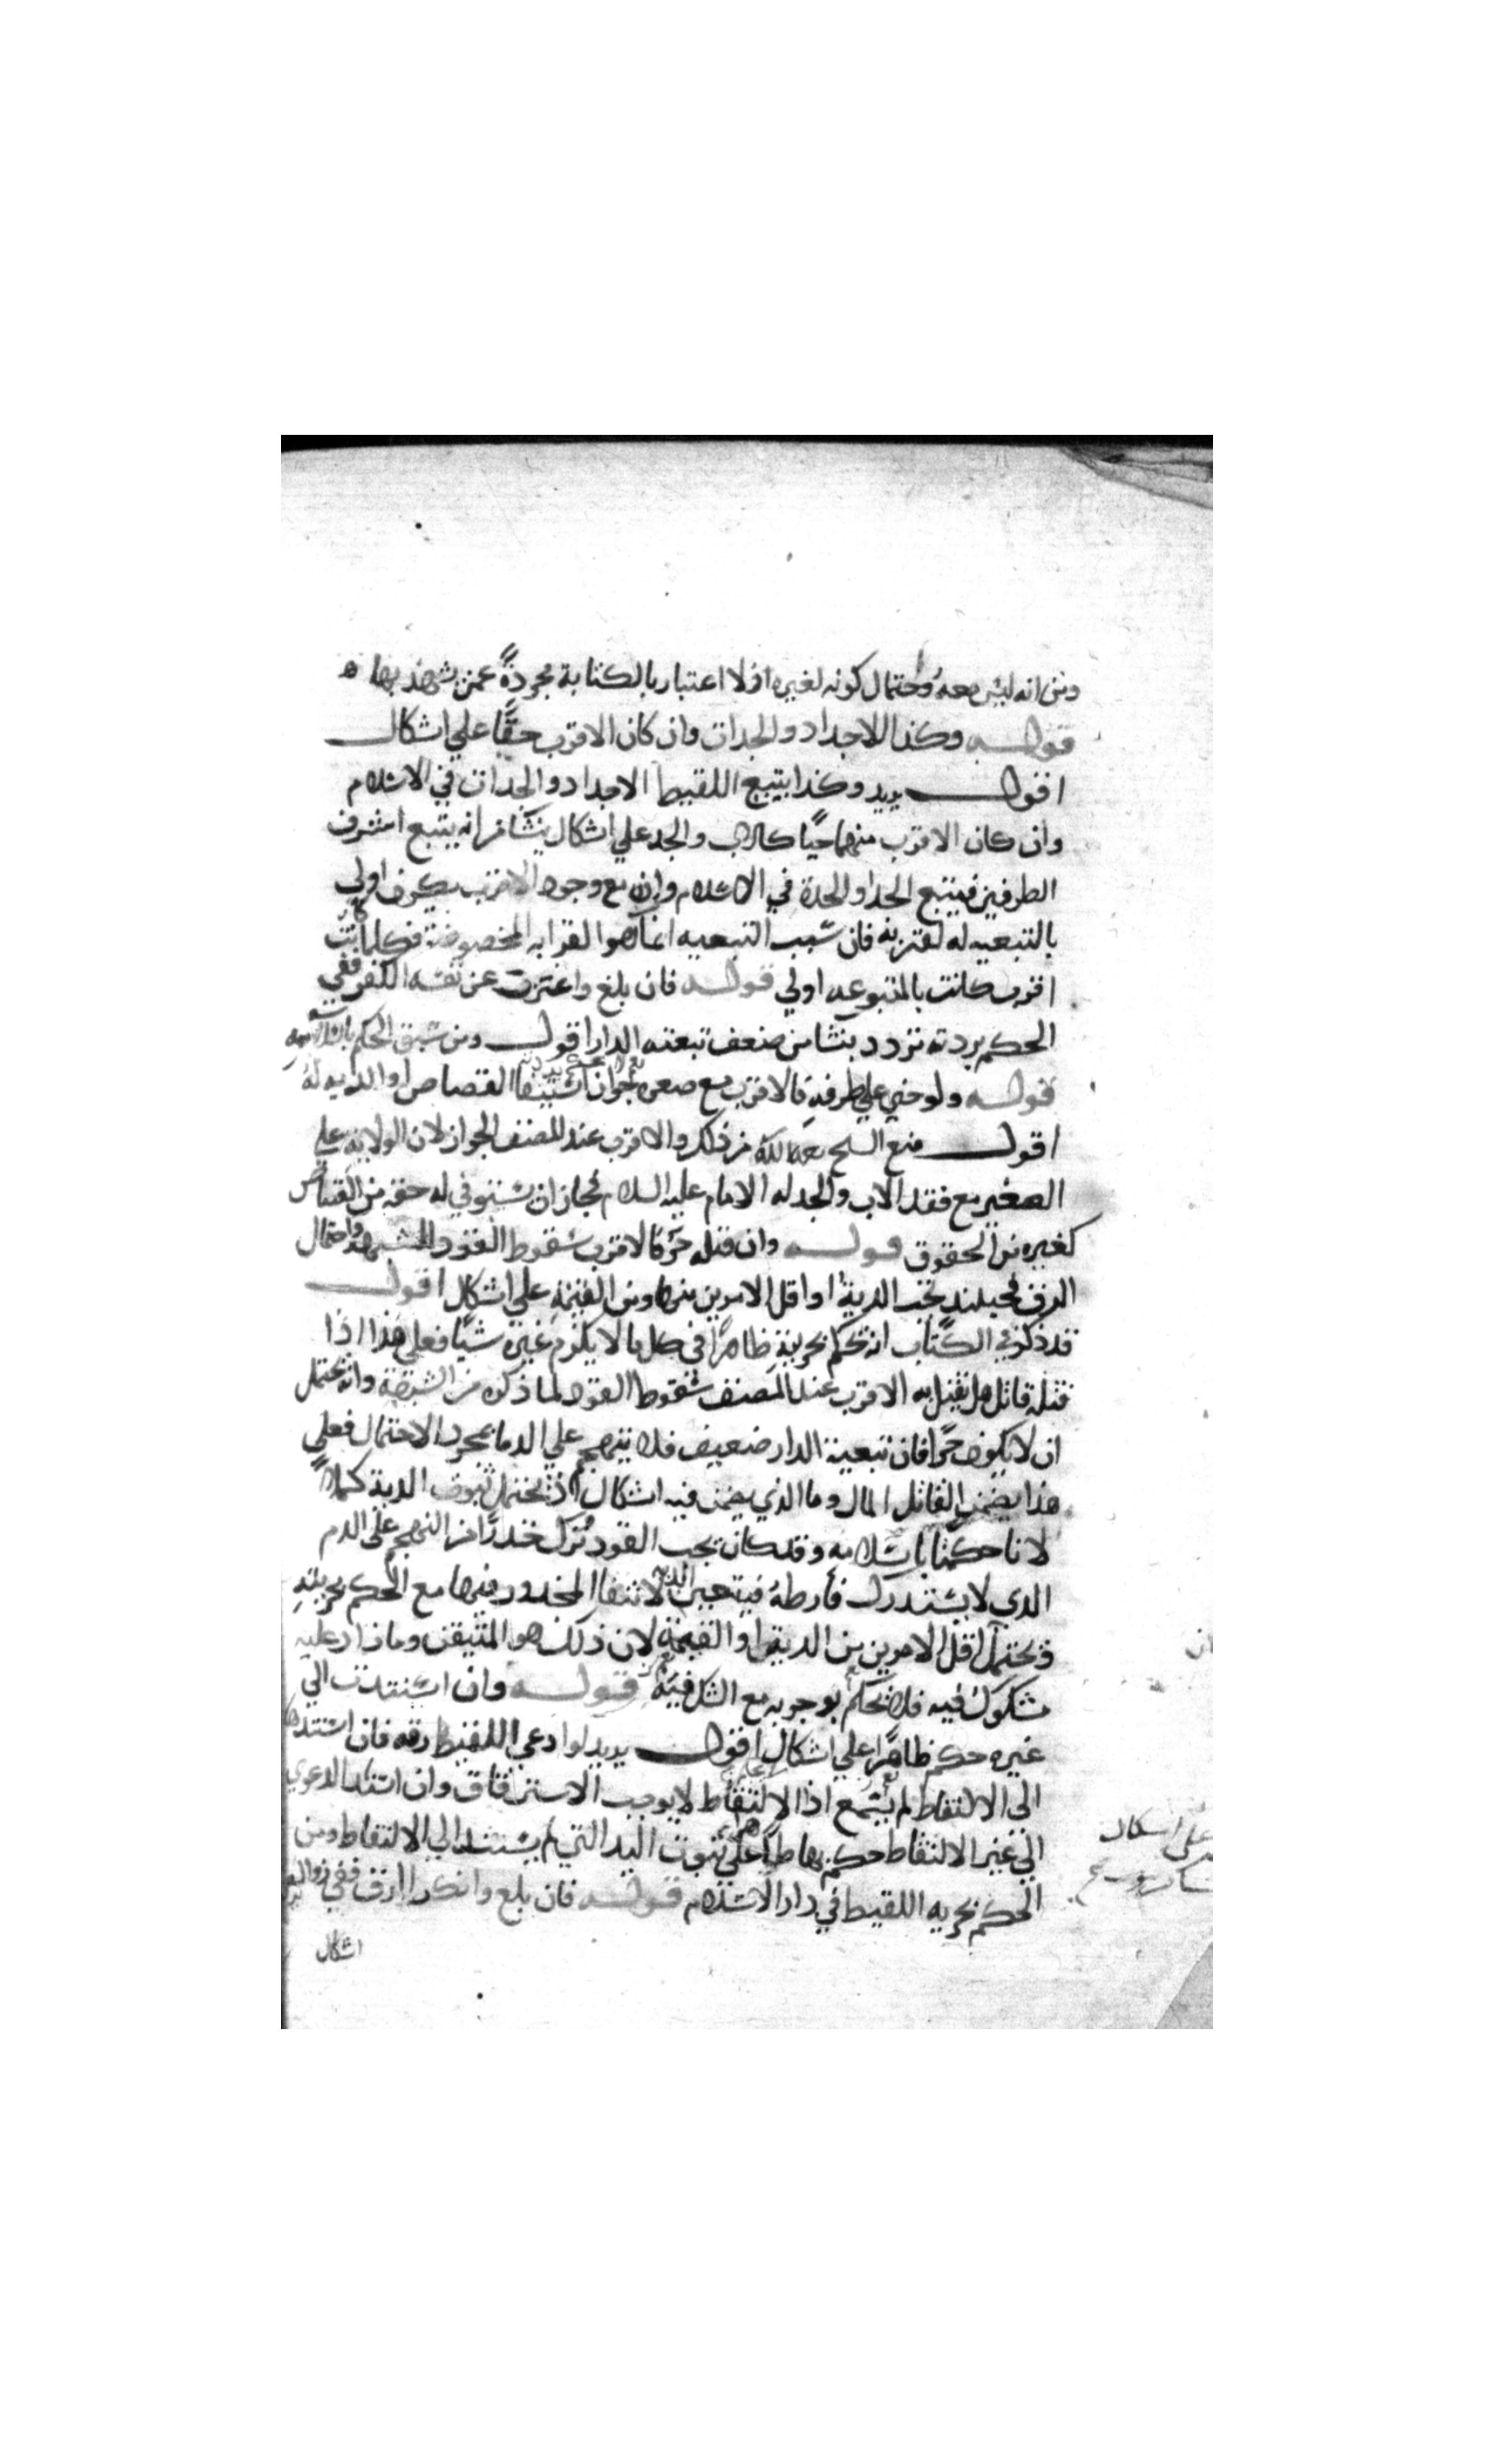 ومن انه ليس معه واحتمال كونه لغيره اذ لا اعتبار بالكتابة مجردة عمن يشهد بها ه
قوله وكذا الاجداد والجدات وان كان الاقرب حيًّا علي اشكال
اقول يريد وكذا يتبع اللقيط الاجداد والجدات في الاسلام
وان كان الاقرب منهما حيًّا كالاب والجد علي اشكال ينشأ من انه يتبع اشرف
الطرفين فيتبع الجد او الجدة في الاسلام وان مع وجود الاقرب يكون اولي
بالتبعيه له لقربه فان سبب التبعيه انما هو القرابه المخصوصة فكلما كانت
اقرب كانت بالمتبوعيه اولي قوله فان بلغ واعترف عن نفسه الكفر ففي
الحكم بردته تردد ينشا من ضعف تبعيه الدار اقول ومن سبق الحكم باسلامه
قوله ولو جني علي طرفه فالاقرب مع صغره جواز استيفا القصاص او الديه له
اقول منع الشيخ رحمه الله من ذلك والاقرب عند المصنف الجواز لان الولايه علي
الصغير مع فقد الاب والجد له الامام عليه السلام فجاز ان يستوفي له حقه من القصاص
كغيره من الحقوق قوله وان قتله حر فالاقرب سقوط القود للشبهة واحتمال
الرق فحينئذ تجب الدية او اقل الامرين منها ومن القيمة علي اشكال اقول
قد ذكر في الكتاب انه يحكم بحريته ظاهرًا في كل ما لا يلزم غيره شيًا فعلي هذا اذا
قتله قاتل هل يقتل به الاقرب عند المصنف سقوط القود لما ذكره من الشبهة وانه يحتمل
ان لا يكون حرًّا فان تبعية الدار ضعيف فلا يتهجم علي الدما بمجرد الاحتمال فعلي
هذا يضمن القاتل المال وما الذي يضمن فيه اشكال اذ يحتمل ثبوت الدية كملاً
لانا حكمنا باسلامه وقد كان يجب القود تُرك حذرًا من التهجم علي الدم
الذي لا يستدرك فارطه فيتجبر الديه لانتفا المحذور فيها مع الحكم بحريته
ويحتمل اقل الامرين من الدية او القيمة لان ذلك هو المتيقن وما زاد عليه
مشكوك فيه فلا يحكم بوجوبه مع الشك فيه قوله وان استندت الي
غيره حكم ظاهرًا علي اشكال اقول يريد لو ادعي اللقيط رقه فان استندها
الي الالتقاط لم يسمع اذ الالتقاط لا يوجب الاسترقاق وان استند الدعوي
الي غير الالتقاط حكم بها ظاهرًا علي ثبوت اليد التي لم يستند الي الالتقاط ومن
الحكم بحريه اللقيط في دار الاسلام قوله فان بلغ وانكر الرق ففي زوال
اشكال
علي اشكال